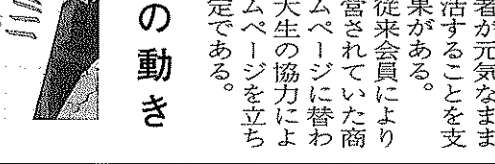 者が元気なまま
活することを支
果がある。
従来会員により
営されていた商
ムページに替わ
大生の協力によ
ムページを立ち
定である。
の動き